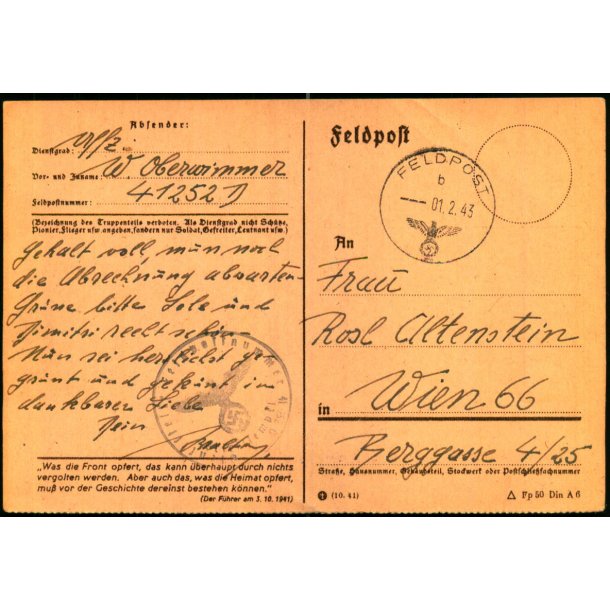 Absender:
Dienstgrad: Uffz.
Vor- und Zuname: W. Oberwimmer
Feldpostnummer: 41252 D
(Bezeichnung des Truppenteils verboten. Als Dienstgrad nicht Schütze,
Pionier, Flieger usw. angeben, sondern nur Soldat, Gefreiter, Leutnant usw.)
Gehalt voll, nun noch
die Abrechnung abwarten.
Grüße bitte Lola und
Dimitri recht schön.
Nun sei herzlichst ge-
grüßt und geküßt in
dankbarer Liebe
Dein
„Was die Front opfert, das kann überhaupt durch nichts
vergolten werden. Aber auch das, was die Heimat opfert,
muß vor der Geschichte dereinst bestehen können.“
(Der Führer am 3. 10. 1941)
Feldpost
FELDPOST
b
01.2.43
An
Frau
Rosl Altenstein
in Wien 66
Berggasse 4/25
Straße, Hausnummer, Gebäudeteil, Stockwerk oder Postschließfachnummer
(10. 41)
Fp 50 Din A 6